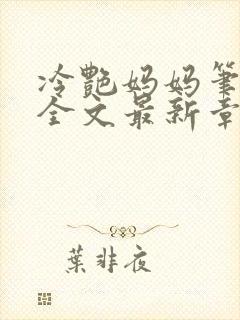 冷艷妈妈筆
全文最新章
葉非夜